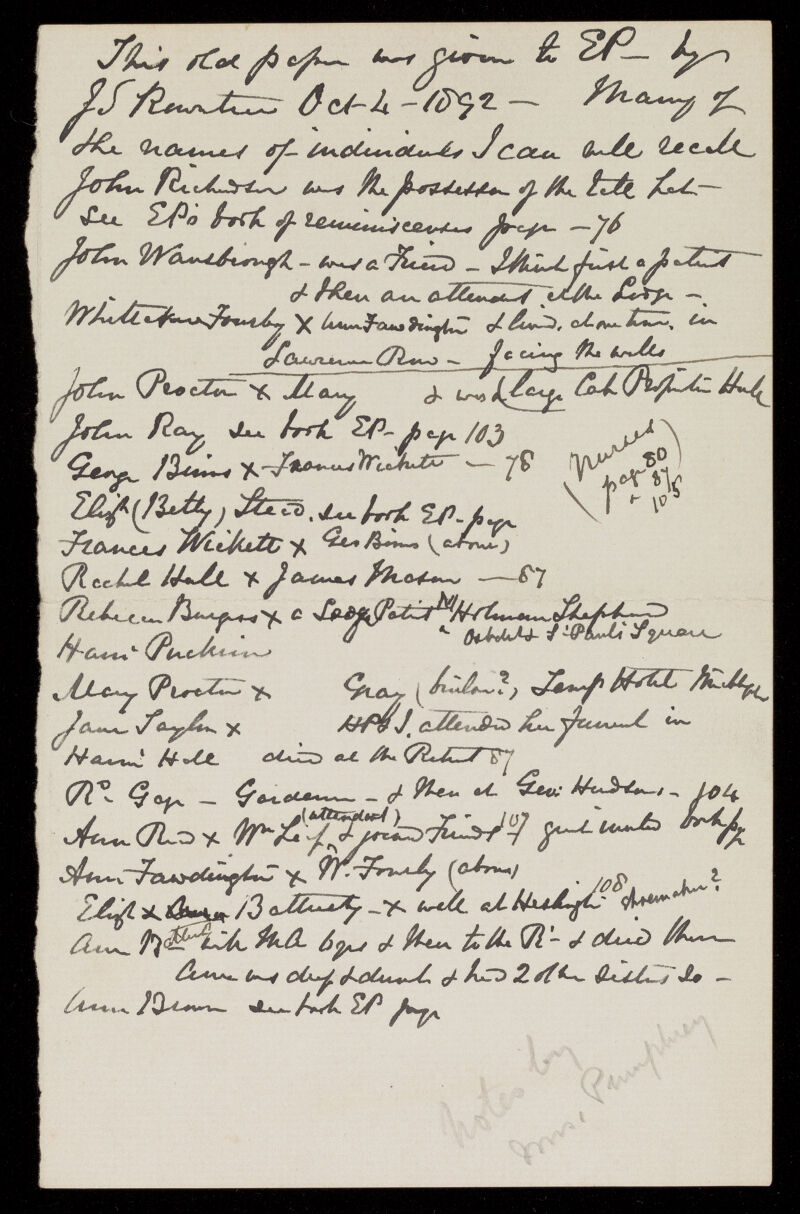 This old paper was given to EP – by
J S Rowntree Oct 4 – 1892 – Many of
the names of individuals I can well recall
John Richardson was the possessor of the tall hat –
see EP's book of reminiscenses page – 76
John Wansbrough – was a Friend – I think first a patient
& then an attendant at the Lodge –
Fowsby x Ann Fawdington & lived in
Lawrence Row – facing the walls
John Proctor x Mary & was a large Cab Proprietor Hull
John Ray see book EP – page 103
George Binns x Frances Wickett – 78
(Nurses
page 80
+ 87
105)
Elizth (Betty) Steed. see book EP – page
Frances Wickett x Geo Binns (above)
Rachel Hall x James Mason – 87
Rebecca Burgess x a Lodge Patient Holman Shepherd
& St Paul's Square
Mary Proctor x Gray ( ?) Temp Hotel
Jane Taylor x attended her funeral in
died at the Retreat 87
Rd – Gardener – & then at Geo: Hudson's – 104
Ann x Wm (attendant) & joined Friends 107 book pge
Ann Fawdington x W. Fowsby (above)
Elizth x Battensty – x well at Heslington 108 shoemaker?
Ann with MA & then to the Rt – & died there
Anne was deaf & dumb & had 2 other sisters so –
Ann Brown see book EP page
Notes by
Mrs. Pumphrey